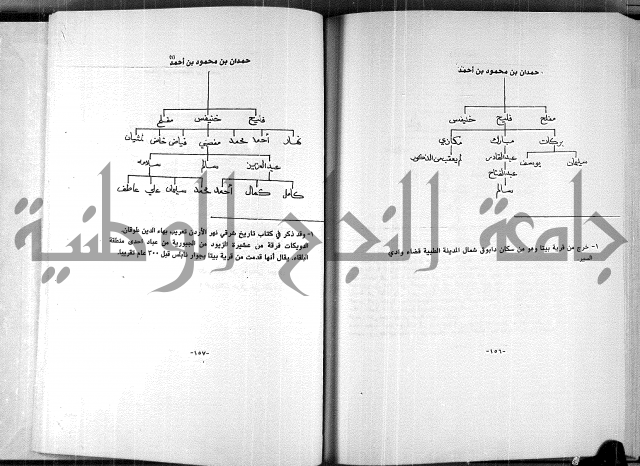 حمدان بن محمود بن أحمد
مفلح فليح خنيفس
بركات مبارك مكازي
سليمان يوسف عبدالقادر لم يعقب من الذكور
عبدالفتاح
سالم
١- خرج من قرية بيتا وهو من سكان دابوق شمال المدينة الطبية قضاء وادي
السير.
-١٥٦-
حمدان بن محمود بن أحمد (١)
فليح خنيفس مفلح
نهار أحمد محمد مفضي فياض خلف نشيان
عبدالعزيز سالم سلامه
كامل كمال أحمد محمد سليمان علي عاطف
١- وقد ذكر في كتاب تاريخ شرقي نهر الأردن تعريب بهاء الدين طوقان،
الدويكات فرقة من عشيرة الزيود من الجبورية من عباد احدى منطقة
البلقاء، يقال أنها قدمت من قرية بيتا بجوار نابلس قبل ٣٠٠ عام تقريباً.
-١٥٧-
جامعة النجاح الوطنية